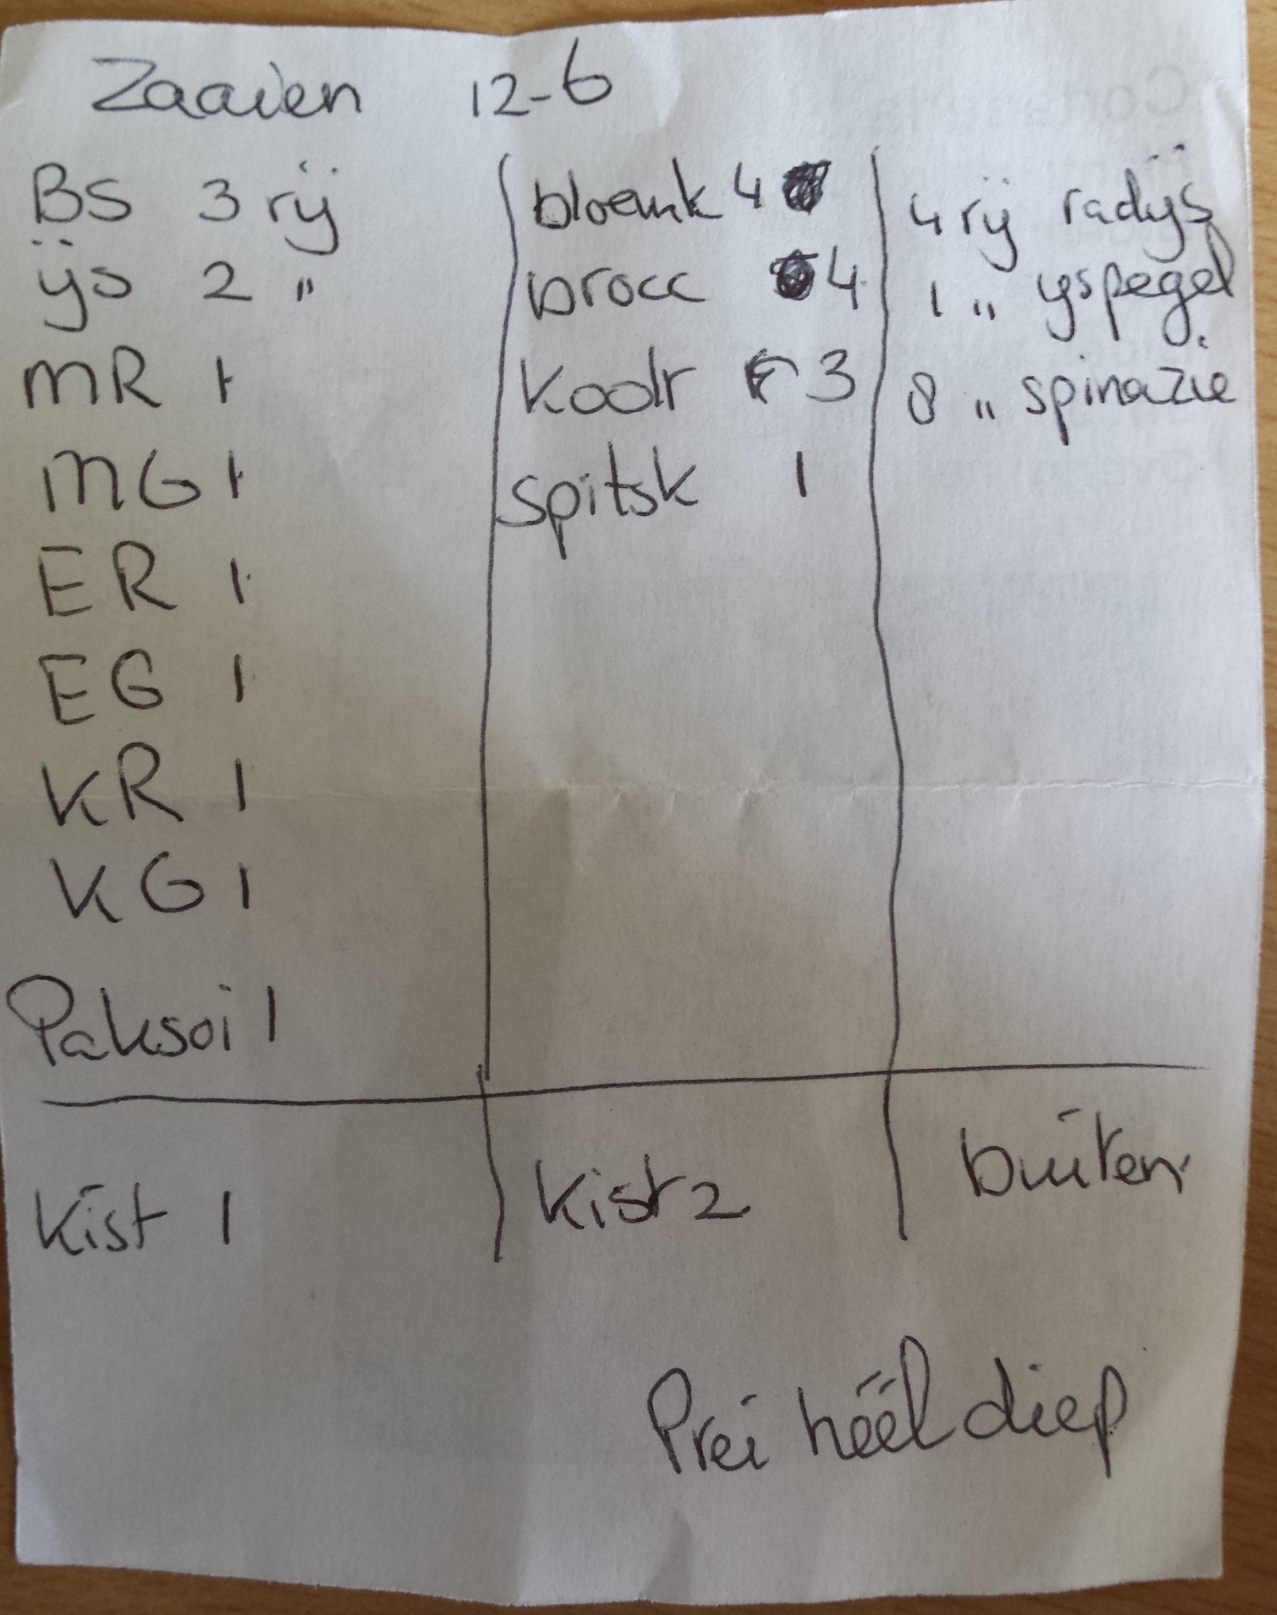 Zaaien 12-6
BS 3 rij
ijs 2 "
MR 1
MG 1
ER 1
EG 1
KR 1
KG 1
Paksoi 1
Kist 1
bloemk 4
brocc 4
koolr 3
spitsk 1
kist 2
4 rij radijs
1 " yspegel
8 " spinazie
buiten
Prei héél diep